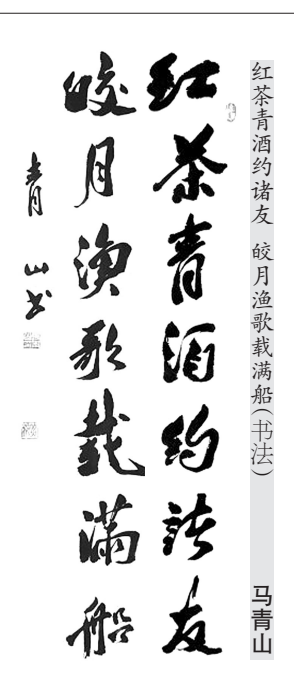 红茶青酒约诸友 皎月渔歌载满船(书法)
马青山
红茶青酒约諸友
皎月渔歌载滿船
青山书